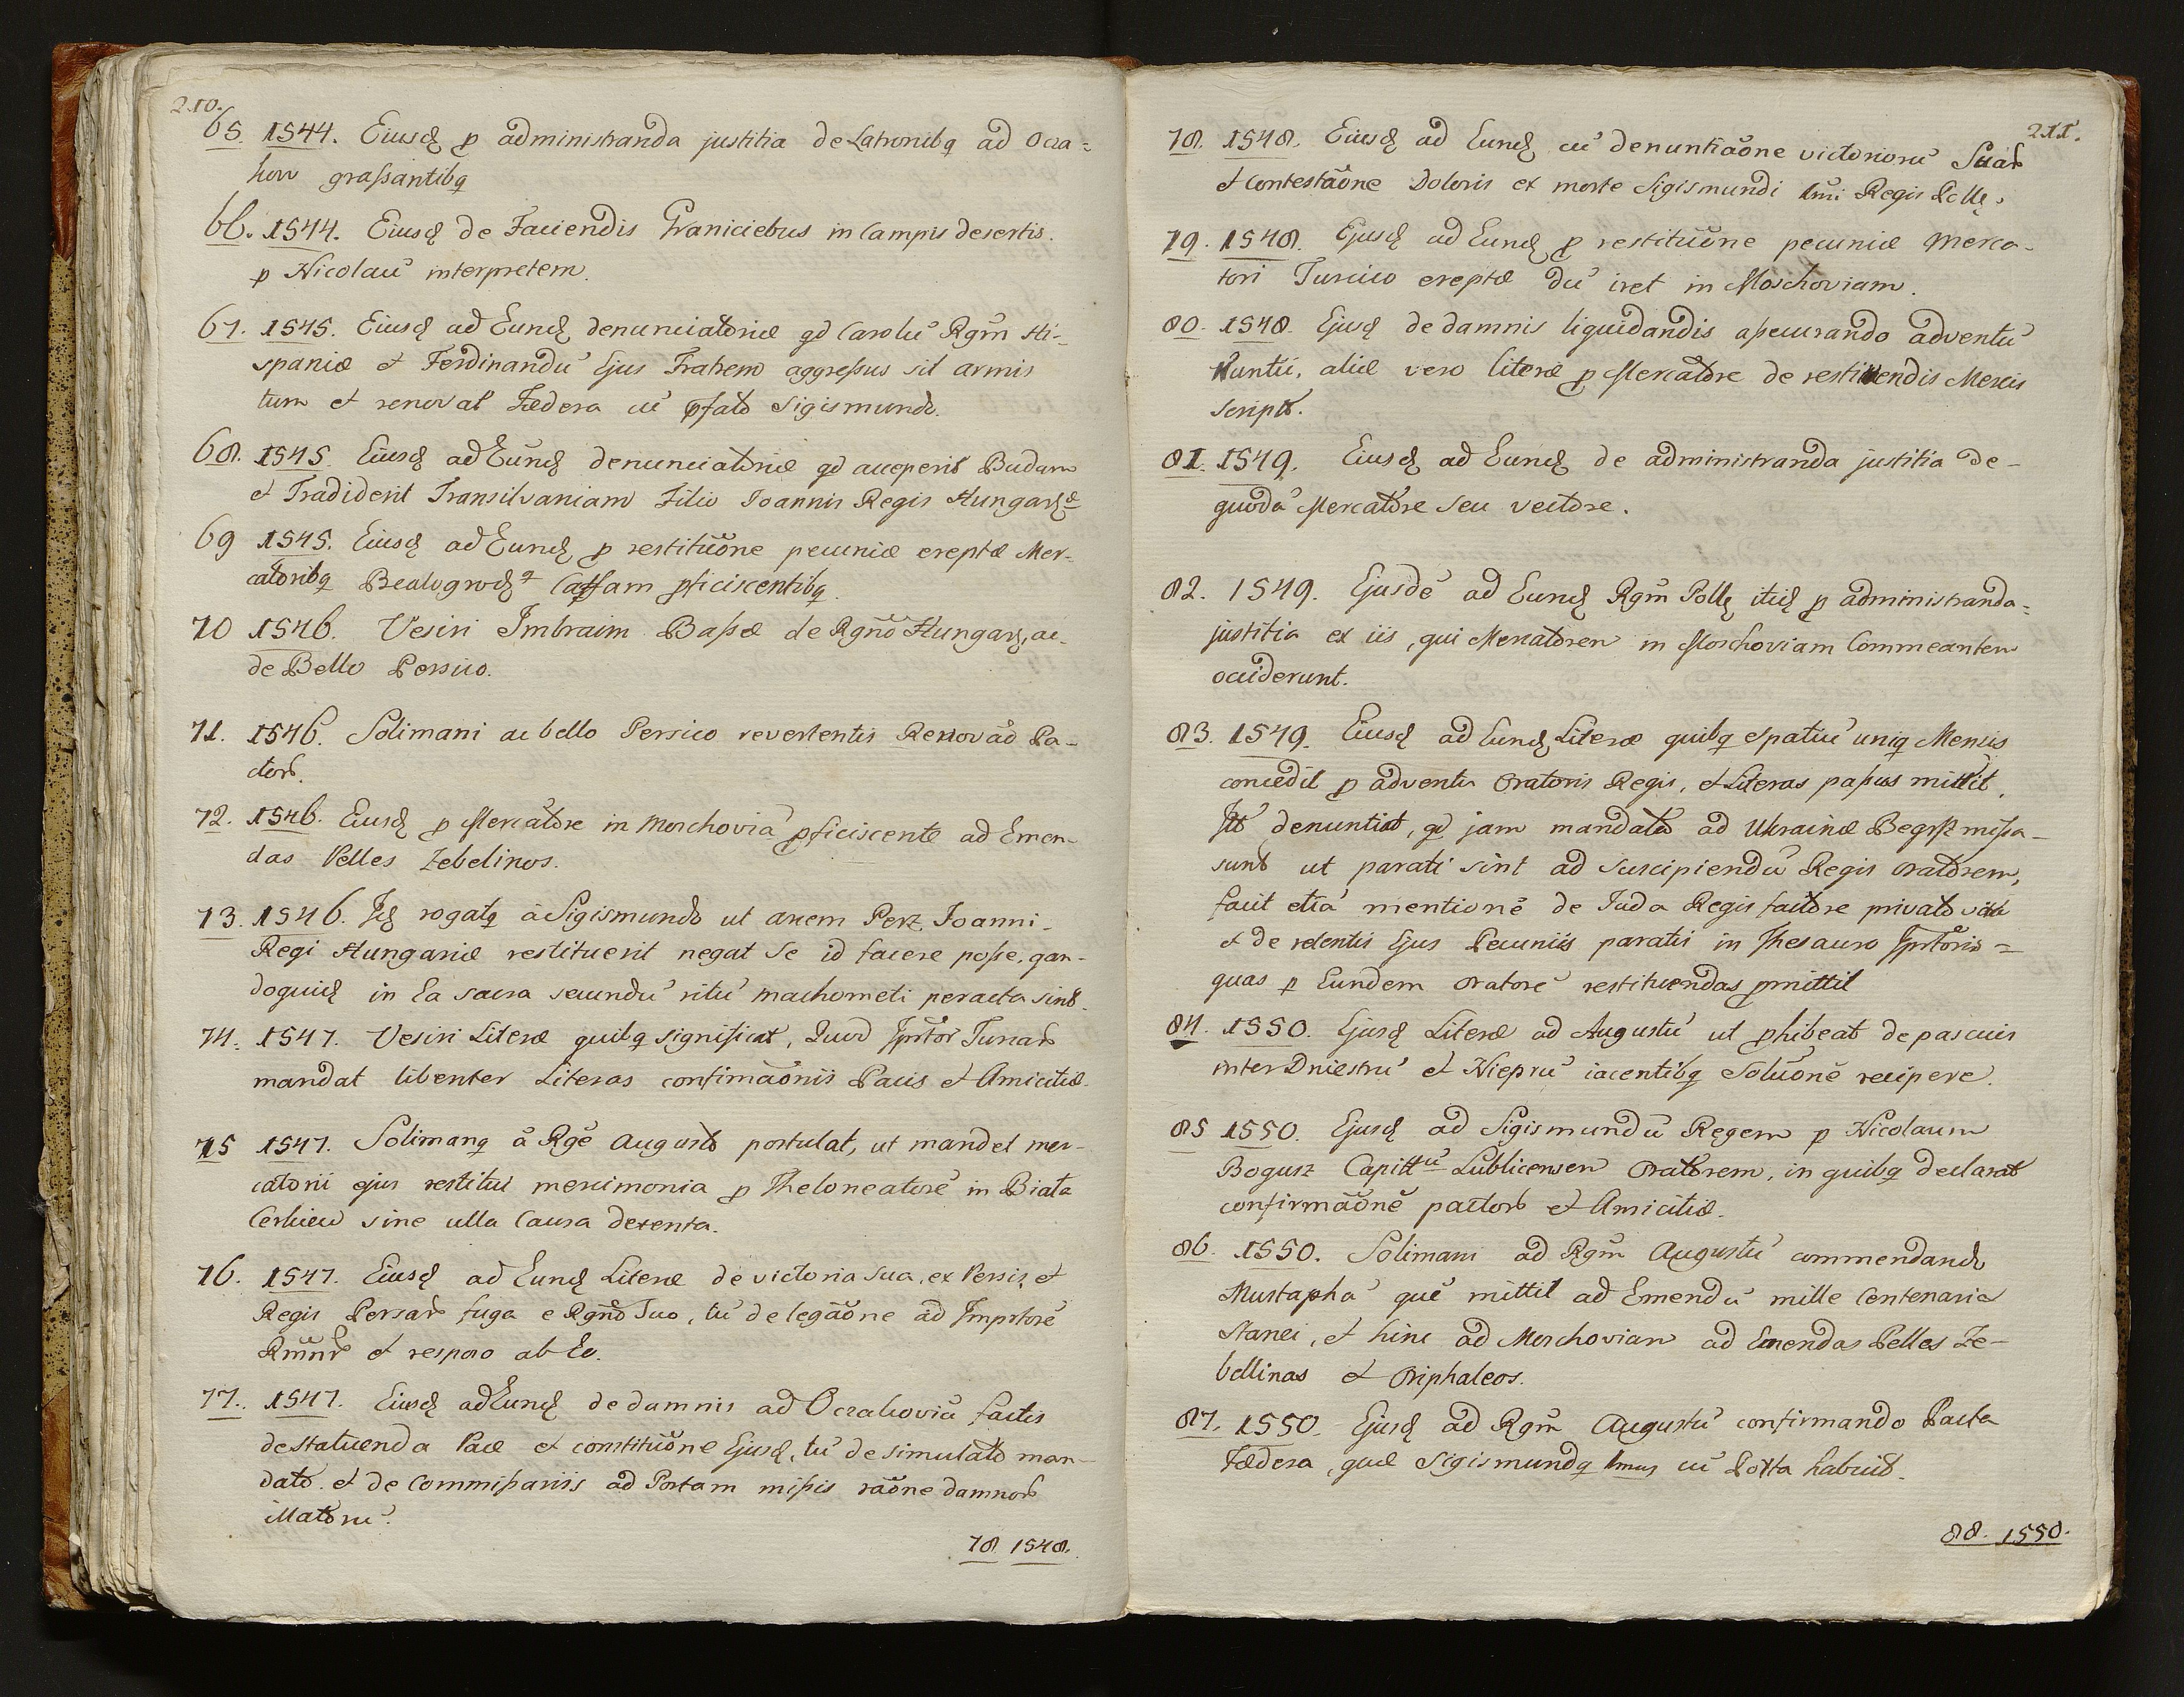 210.
65. 1544. Eiusd p administranda justitia de Latronibq ad Ocza=
kow graßantibq
66. 1544. Eiusd de Faciendis Graniciebus in Campis desertis.
p Nicolaū interpretem.
67. 1545. Eiusd ad Eund denunciatoriæ qd Carolū Rgm̄ Hi-
spaniæ et Ferdinandū Ejus Fratrem aggreßus sit armis
tum et renovat Fædera cū pfato Sigismundo.
68. 1545. Eiusd ad Eund denunciatoriæ qd acceperit Budam
et Tradiderit Transilvaniam Filio Joannis Regis Hungar
69 1545. Eiusd ad Eund p restituōne pecuniæ ereptæ Mer-
catoribq Bealogrod Caffam pficiscentibq.
70 1546. Vesiri Imbraim Baßæ de Rgnō Hungar, ac
de Bello Persico.
71. 1546. Solimani ac bello Persico revertentis Renovaō Pa-
ctor.
72. 1546. Eiusd p Mercatore in Moschoviā pficiscente ad Emen-
das Pelles Zebelinos.
73. 1546. Id rogatq à Sigismundo ut arcem Perz. Joanni
Regi Hungariæ restituerit negat Se id facere poße, qan-
doquid in Ea sacra secundū ritū Machometi peracta sint.
74. 1547. Vesiri Literæ quibq significat, Quod Iprtor Turcar
mandat libenter Literas confirmaōnis Pacis et Amicitiæ.
75 1547. Solimanq à Rgē Augusto postulat, ut mandet mer-
catorii ejus restitui mercimonia p Theloneatorē in Biała
Cerkiew sine ulla Causa detenta.
76. 1547. Eiusd ad Eund Literæ de victoria sua, ex Persis, et
Regis Persar fuga e Rgnō Suo, tū de legaōne ad Imprtorē
Rmnr et respono ab Eo.
77. 1547. Eiusd ad Eund de damnis ad Oczakoviā factis
de statuenda Pace et constituōne Ejusd, tū de simulato man-
dato. et de Commißariis ad Portam mißis raōne damnor
illatorū.
78. 1548.
211.
78. 1548. Eiusd ad Eund cū denuntiaōne victoriorū Suar
et Contestaōne Doloris ex morte Sigismundi Imi Regis Poll.
79. 1548. Ejusd ad Eund p restituōne pecuniæ Merca-
tori Turcico ereptæ dū iret in Moschoviam.
80. 1548. Ejusd de damnis liquidandis aßecurando adventū
Nuntii, aliæ vero literæ p Mercatore de restituendis Mercis
scriptæ.
81. 1549. Eiusd ad Eund de administranda justitia de-
quodā Mercatore seu vectore.
82. 1549. Ejusdē ad Eund Rgm̄ Poll itid p administranda=
justitia ex iis, qui Mercatorem in Moschoviam Commeantem
occiderunt.
83. 1549. Eiusd ad Eund Literæ quibq spatiū uniq Mensis
concedit p adventu Oratoris Regis, et Literas paßus mittit.
It denuntiat, qd jam mandata ad Ukrainæ Begos mißa
sunt ut parati sint ad suscipiendū Regis oratorem,
facit etiā mentionē de Juda Regis factore privato vita
et de retentis Ejus Pecuniis paratis in Thesauro Iprtoris=
quas p Eundem Oratorē restituendas pmittit
84. 1550. Ejusd Literæ ad Augustū ut phibeat de pascuis
inter Dniestrū et Nieprū iacentibq Soluōnē recipere.
85 1550. Ejusd ad Sigismundū Regem p Nicolaum
Bogusz Capittū Lublicensem Oratorem, in quibq declarat
confirmaōnē pactor et Amicitiæ.
86. 1550. Solimani ad Rgm̄ Augustū commendando
Mustaphā quē mittit ad Emendū mille Centenaria
Stanei, et hinc ad Moschoviam ad Emendas Pelles Ze-
bellinas et Oriphaleos.
87. 1550. Ejusd ad Rgm̄ Augustū confirmando Pacta
Fædera, quæ Sigismundq Imus cū Porta habuit.
88. 1550.